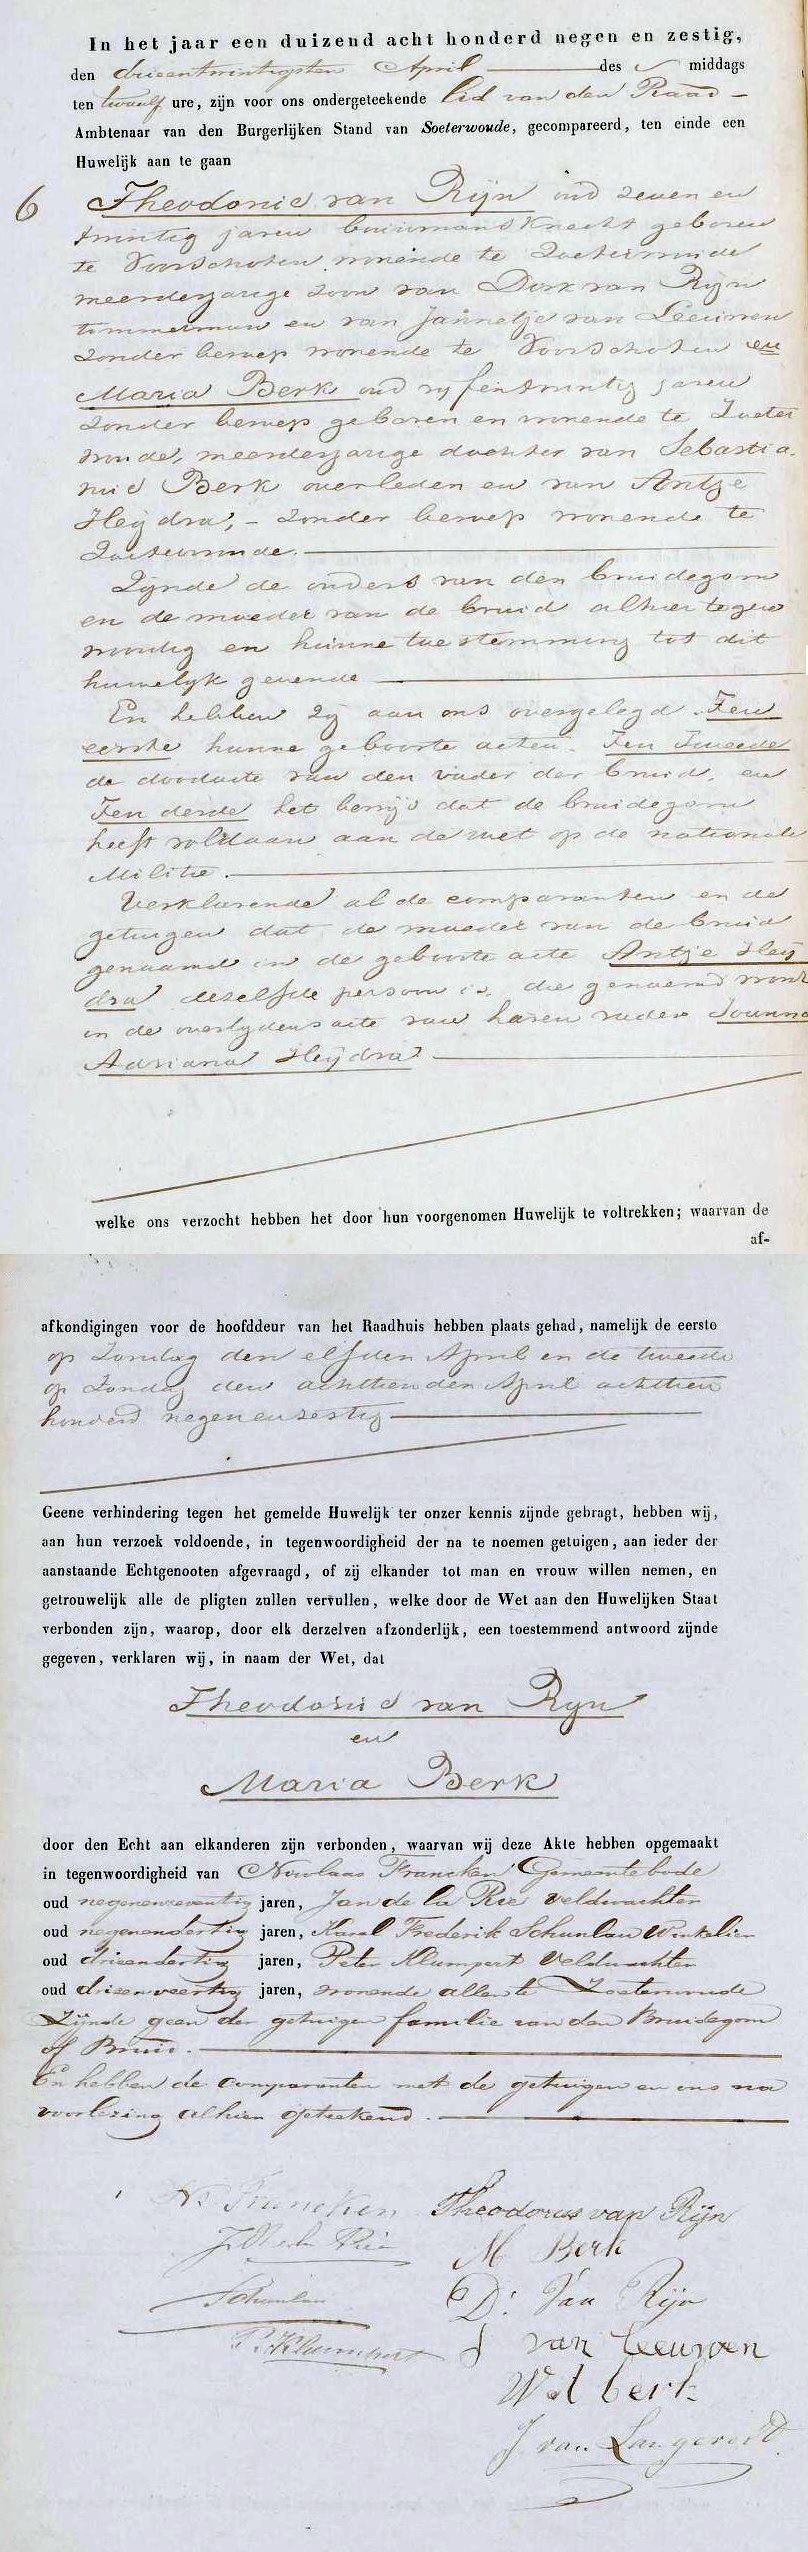 In het jaar een duizend acht honderd negen en zestig,
den drieentwintigsten April des middags
ten twaalf ure, zijn voor ons ondergeteekende Lid van den Raad
Ambtenaar van den Burgerlijken Stand van Soeterwoude, gecompareerd, ten einde een
Huwelijk aan te gaan
6 Theodorus van Rijn oud zeven en
twintig jaren bouwmansknecht geboren
te Voorschoten wonende te Zoeterwoude
meerderjarige zoon van Dirk van Rijn
timmerman en van Jannetje van Leeuwen
zonder beroep wonende te Voorschoten en
Maria Berk oud vijfentwintig jaren
zonder beroep geboren en wonende te Zoeter
woude, meerderjarige dochter van Sebastia
nus Berk overleden en van Antje
Heijdra, - zonder beroep wonende te
Zoeterwoude.
Zijnde de ouders van den bruidegom
en de moeder van de bruid alhier tegen
woordig en hunne toestemming tot dit
huwelijk gevende
En hebben zij aan ons overgelegd Ten
eerste hunne geboorte acten. Ten Tweede
de doodacte van den vader der bruid, en
Ten derde het bewijs dat de bruidegom
heeft voldaan aan de wet op de nationale
Militie.
Verklarende al de comparanten en de
getuigen dat de moeder van de bruid
genaamd in de geboorte acte Antje Heij
dra dezelfde persoon is die genaamd wordt
in de overlijdensacte van haren vader Joanna
Adriana Heijdra
welke ons verzocht hebben het door hun voorgenomen Huwelijk te voltrekken; waarvan de
af-
afkondigingen voor de hoofddeur van het Raadhuis hebben plaats gehad, namelijk de eerste
op Zondag den elfden April en de tweede
op Zondag den achttienden April achttien
honderd negenenzestig
Geene verhindering tegen het gemelde Huwelijk ter onzer kennis zijnde gebragt, hebben wij,
aan hun verzoek voldoende, in tegenwoordigheid der na te noemen getuigen, aan ieder der
aanstaande Echtgenooten afgevraagd, of zij elkander tot man en vrouw willen nemen, en
getrouwelijk alle de pligten zullen vervullen, welke door de Wet aan den Huwelijken Staat
verbonden zijn, waarop, door elk derzelven afzonderlijk, een toestemmend antwoord zijnde
gegeven, verklaren wij, in naam der Wet, dat
Theodorus van Rijn
en
Maria Berk
door den Echt aan elkanderen zijn verbonden, waarvan wij deze Akte hebben opgemaakt
in tegenwoordigheid van Nicolaas Francken Gemeentebode
oud negenenzeventig jaren, Jan de la Rie veldwachter
oud negenendertig jaren, Karel Frederik Schunlau Winkelier
oud drieendertig jaren, Peter Klumpert Veldwachter
oud drieenveertig jaren, wonende allen te Zoeterwoude
Zijnde geen der getuigen familie van den Bruidegom
of Bruid.
En hebben de comparanten met de getuigen en ons na
voorlezing alhier geteekend.
Ns Francken Theodorus van Rijn
de la Rie M Berk
Schunlau D. Van Rijn
P. Klumpert J van Leeuwen
W d berk
J. van